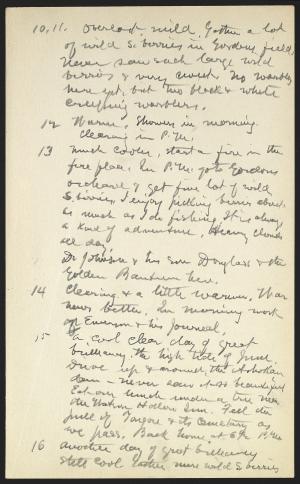 10, 11. Overcast mild. Gather a lot
of wild S. berries in Gordons field,
Never saw such large wild
berries & very sweet. No warblers
here yet, but two black & white
creeping warblers.
12 Warm, showers in morning
clearing in P.M.
13 Much cooler, start a fire in the
fire place. In P.M. go to Gordons
orchard & get fine lot of wild
S. berries. I enjoy picking berries about
as much as I do fishing. It is always
a kind of adventure. Heavy clouds
all day.
Dr Johnson & his son Douglass & the
Golden Bantum here.
14 Clearing & a little warmer, War
news better. In morning work
on Emerson & his Journal,
15 A cool clear day of great
brilliancy, the high tide of June.
Drive up & around the Ashokan
dam – never saw it so beautiful,
Eat our lunch under a tree near
the Watson Hollow Inn. Feel the
pull of Tongore & its Cemetery as
we pass. Back home at 6 P.M.
16 another day of great brilliancy
still cool. Gather more wild S. berries